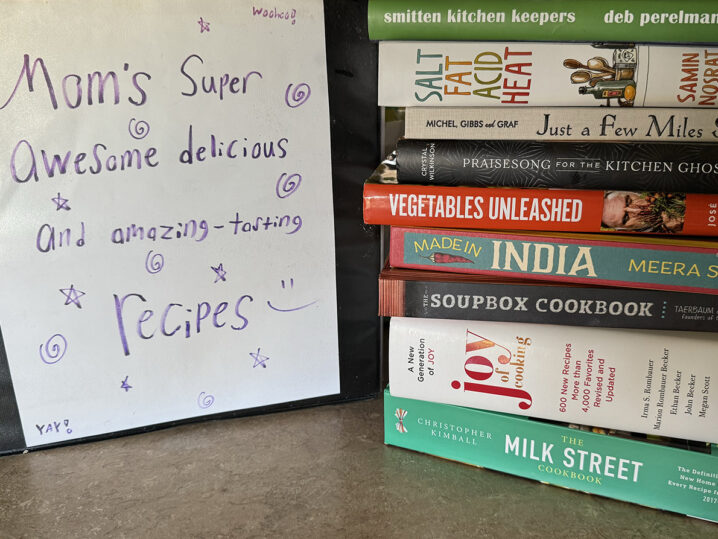 woohoo!
Mom's Super
awesome delicious
and amazing-tasting
recipes
YAY!
smitten kitchen keepers deb perelman
SALT
FAT
ACID
HEAT
SAMIN
NOSRAT
MICHEL, GIBBS and GRAF Just a Few Miles
CRYSTAL
WILKINSON
PRAISESONG FOR THE KITCHEN GHOS
VEGETABLES UNLEASHED JOSÉ
MADE IN INDIA MEERA S
THE SOUPBOX COOKBOOK TAERBAUM
Founders of
A New
Generation
of JOY
joy
of
cooking
600 New Recipes
More than
4,000 Favorites
Revised and
Updated
Irma S. Rombauer
Marion Rombauer Becker
Ethan Becker
John Becker
Megan Scott
CHRISTOPHER
KIMBALL
THE
MILK STREET
COOKBOOK
The Definiti
New Home
Every Recipe f
2017